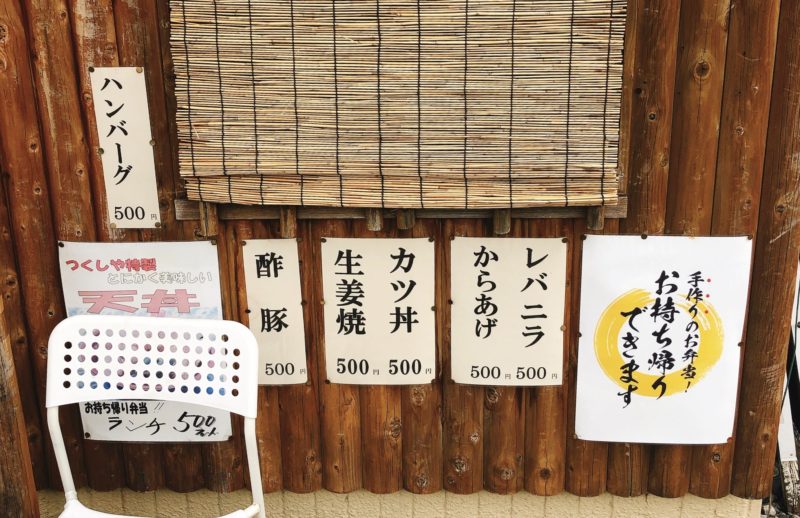 ハンバーグ
500円
つくしや特製
とにかく美味しい
天丼
お持ち帰り弁当!!
ランチ 500
酢豚
500円
カツ丼
500円
生姜焼
500円
レバニラ
500円
からあげ
500円
手作りのお弁当!
お持ち帰り
できます